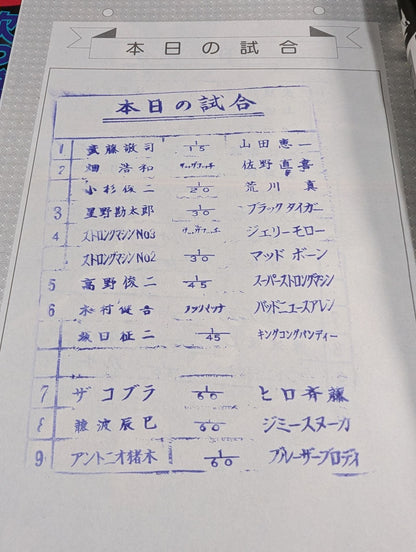 本日の試合
本日の試合
1 武藤敬司 1/15 山田恵一
2 畑浩和 タッグマッチ 佐野直喜
小杉俊二 1/20 荒川真
3 星野勘太郎 1/30 ブラックタイガー
4 ストロングマシンNo3 タッグマッチ ジェリーモロー
ストロングマシンNo2 1/30 マッドボーン
5 高野俊二 1/45 スーパーストロングマシン
6 木村健吾 タッグマッチ バッドニュースアレン
坂口征二 1/45 キングコングバンディー
7 ザコブラ 1/60 ヒロ斉藤
8 藤波辰巳 1/60 ジミースヌーカ
9 アントニオ猪木 1/60 ブルーザーブロディ